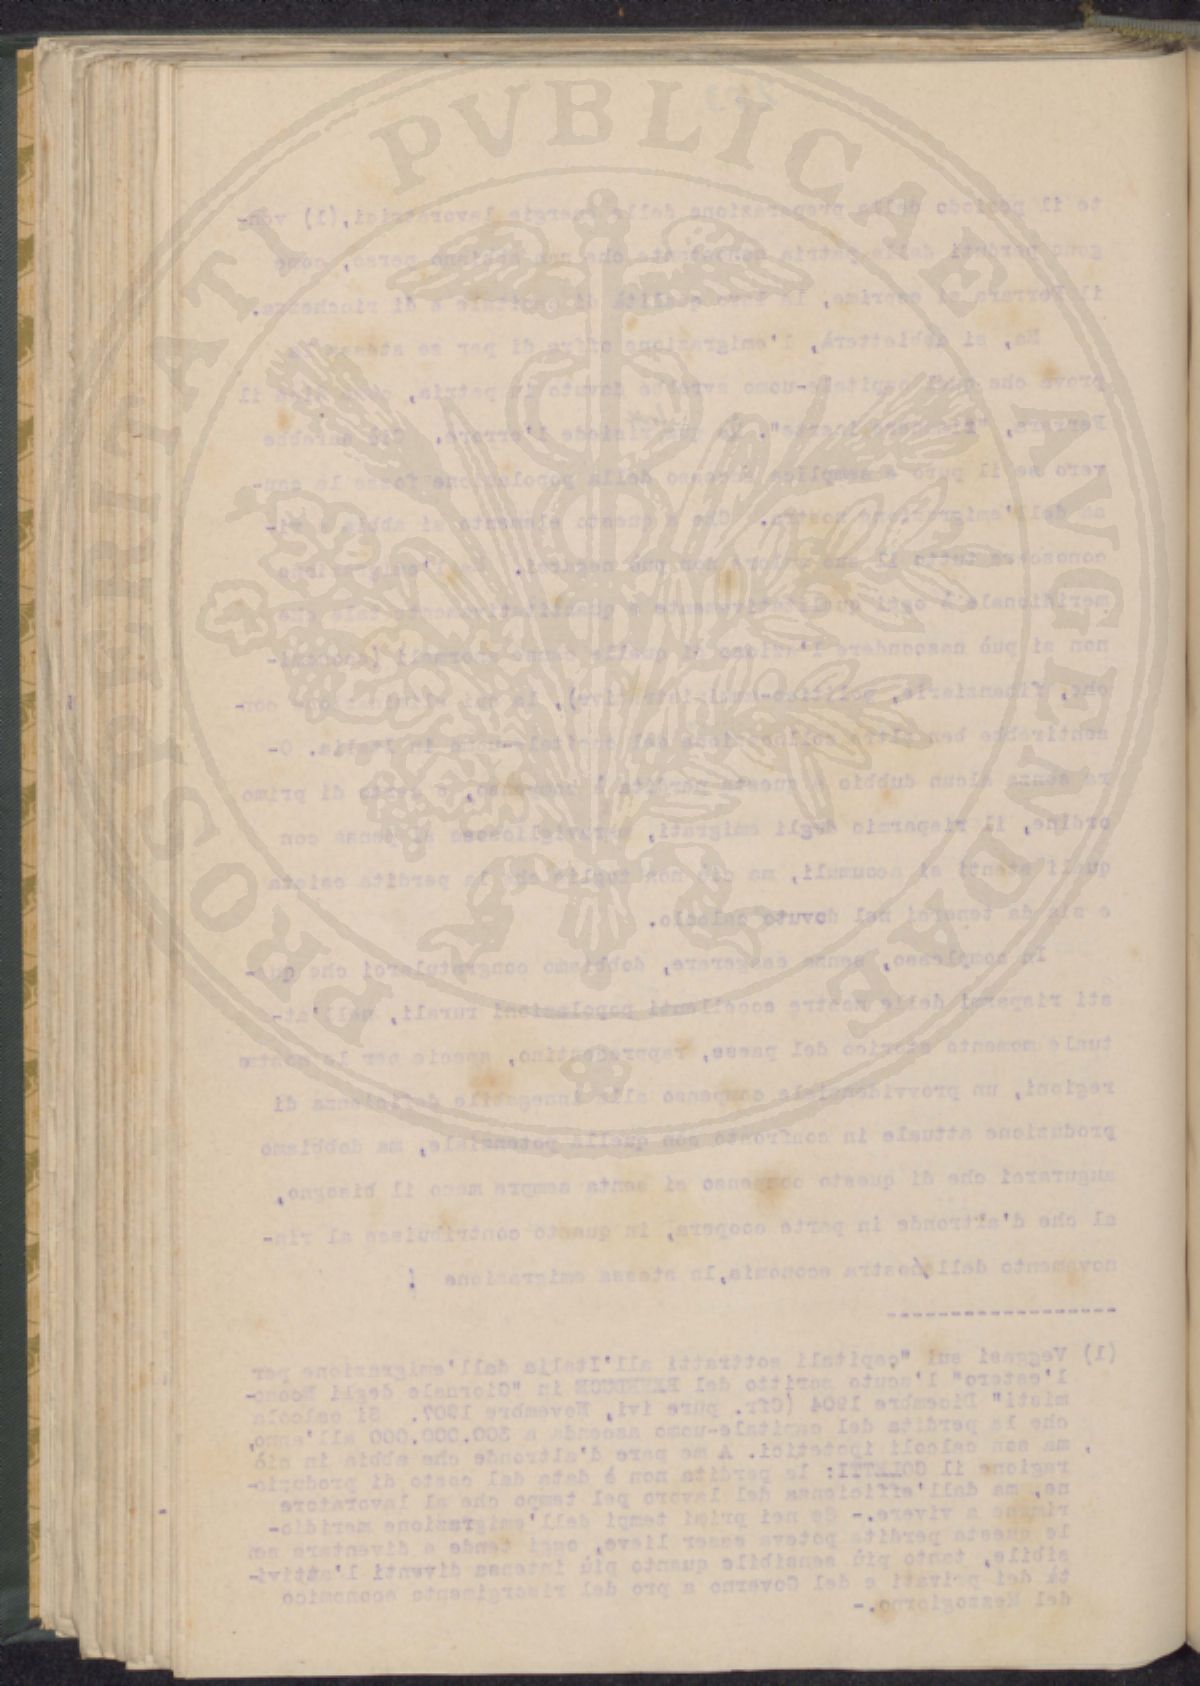 PROSPERITATI PVBLICAE AVGENDAE
te il periodo della preparazione delle energie lavoratrici,(1) ven-
gono perduti dalla patria nonostante che non abbiano perso, come
il Ferrara si esprime, la loro qualità di capitale e di ricchezza.
Ma, si obbietterà, l'emigrazione offre di per se stessa la
prova che quel capitale-uomo avrebbe dovuto in patria, come dice il
Ferrara, "rimanere inerte". In qui risiede l'errore. Ciò sarebbe
vero se il puro e semplice eccesso della popolazione fosse la cau-
sa dell'emigrazione nostra. Che a questo elemento si abbia a ri-
conoscere tutto il suo valore non può negarsi. Ma l'emigrazione
meridionale è oggi qualitativamente e quantitativamente tale che
non si può nascondere l'azione di quelle cause anormali (economi-
che, finanziarie, politico-amministrative), la cui eliminazione con-
sentirebbe ben altra collocazione del capitale-uomo in Italia. O-
ra senza alcun dubbio a questa perdita è compenso, e certo di primo
ordine, il risparmio degli emigrati, meraviglioso se si pensa con
quali stenti si accumuli, ma ciò non toglie che la perdita esista
e sia da tenersi nel dovuto calcolo.
In complesso, senza esagerare, dobbiamo congratularci che que-
sti risparmi delle nostre eccellenti popolazioni rurali, nell'at-
tuale momento storico del paese, rappresentino, specie per le nostre
regioni, un provvidenziale compenso alla innegabile deficienza di
produzione attuale in confronto con quella potenziale, ma dobbiamo
augurarci che di questo compenso si senta sempre meno il bisogno,
al che d'altronde in parte coopera, in quanto contribuisce al rin-
novamento della nostra economia, la stessa emigrazione !
(1) Veggasi sui "capitali sottratti all'Italia dall'emigrazione per
l'estero" l'acuto scritto del in "Giornale degli Econo-
misti" Dicembre 1904 (Cfr. pure ivi, Novembre 1907. Si calcola
che la perdita del capitale-uomo ascenda a 300.000.000 all'anno,
ma son calcoli ipotetici. A me pare d'altronde che abbia in ciò
ragione il COLETTI: la perdita non è data dal costo di produzio-
ne, ma dall'efficienza del lavoro pel tempo che al lavoratore
rimane a vivere.- Se nei primi tempi dell'emigrazione meridio-
le questa perdita poteva esser lieve, oggi tende a diventare sen
sibile, tanto più sensibile quanto più intensa diventi l'attivi-
tà dei privati e del Governo a pro del risorgimento economico
del Mezzogiorno.-